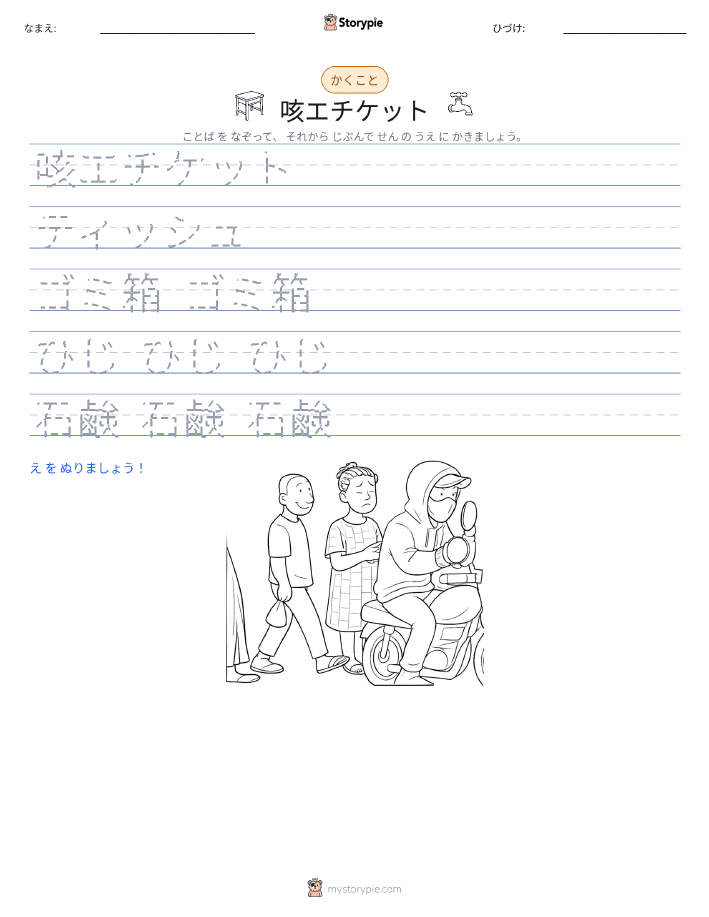 なまえ:
Storypie
ひづけ:
かくこと
咳エチケット
ことば を なぞって、 それから じぶんで せん の うえ に かきましょう。
咳エチケット
ティッシュ
ゴミ箱 ゴミ箱
ひじ ひじ ひじ
石鹸 石鹸 石鹸
え を ぬりましょう！
mystorypie.com